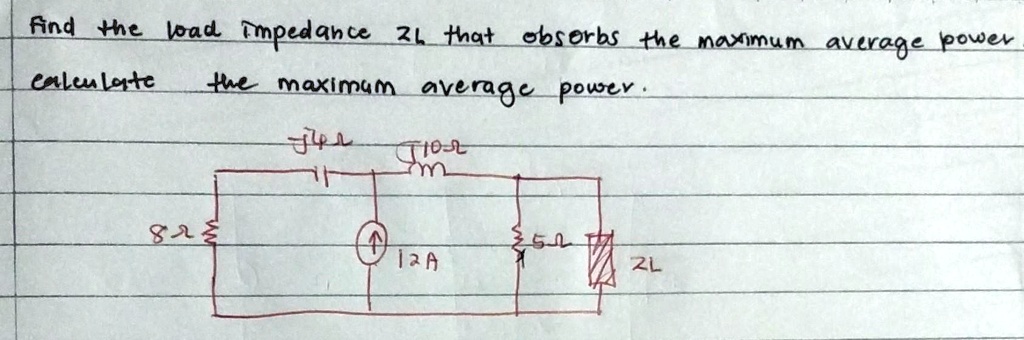 Find the load impedance ZL that obsorbs the maximum average power.
calculate the maximum average power.
-j4Ω
J10Ω
8Ω
12A
5Ω
ZL